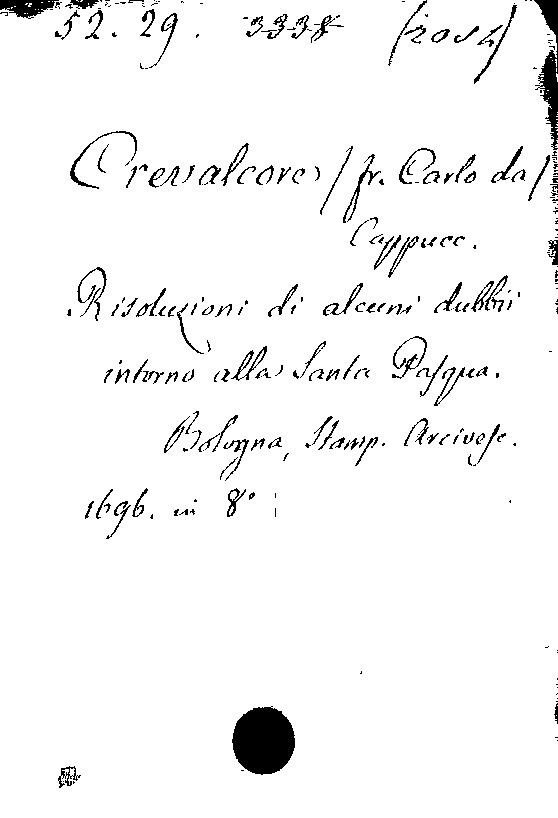 52. 29. 3338 (2054)
Crevalcore / fr. Carlo da /
Cappucc.
Risoluzioni di alcuni dubbii
intorno alla Santa Pasqua.
Bologna, Stamp. Arcivesc.
1696. in 8°